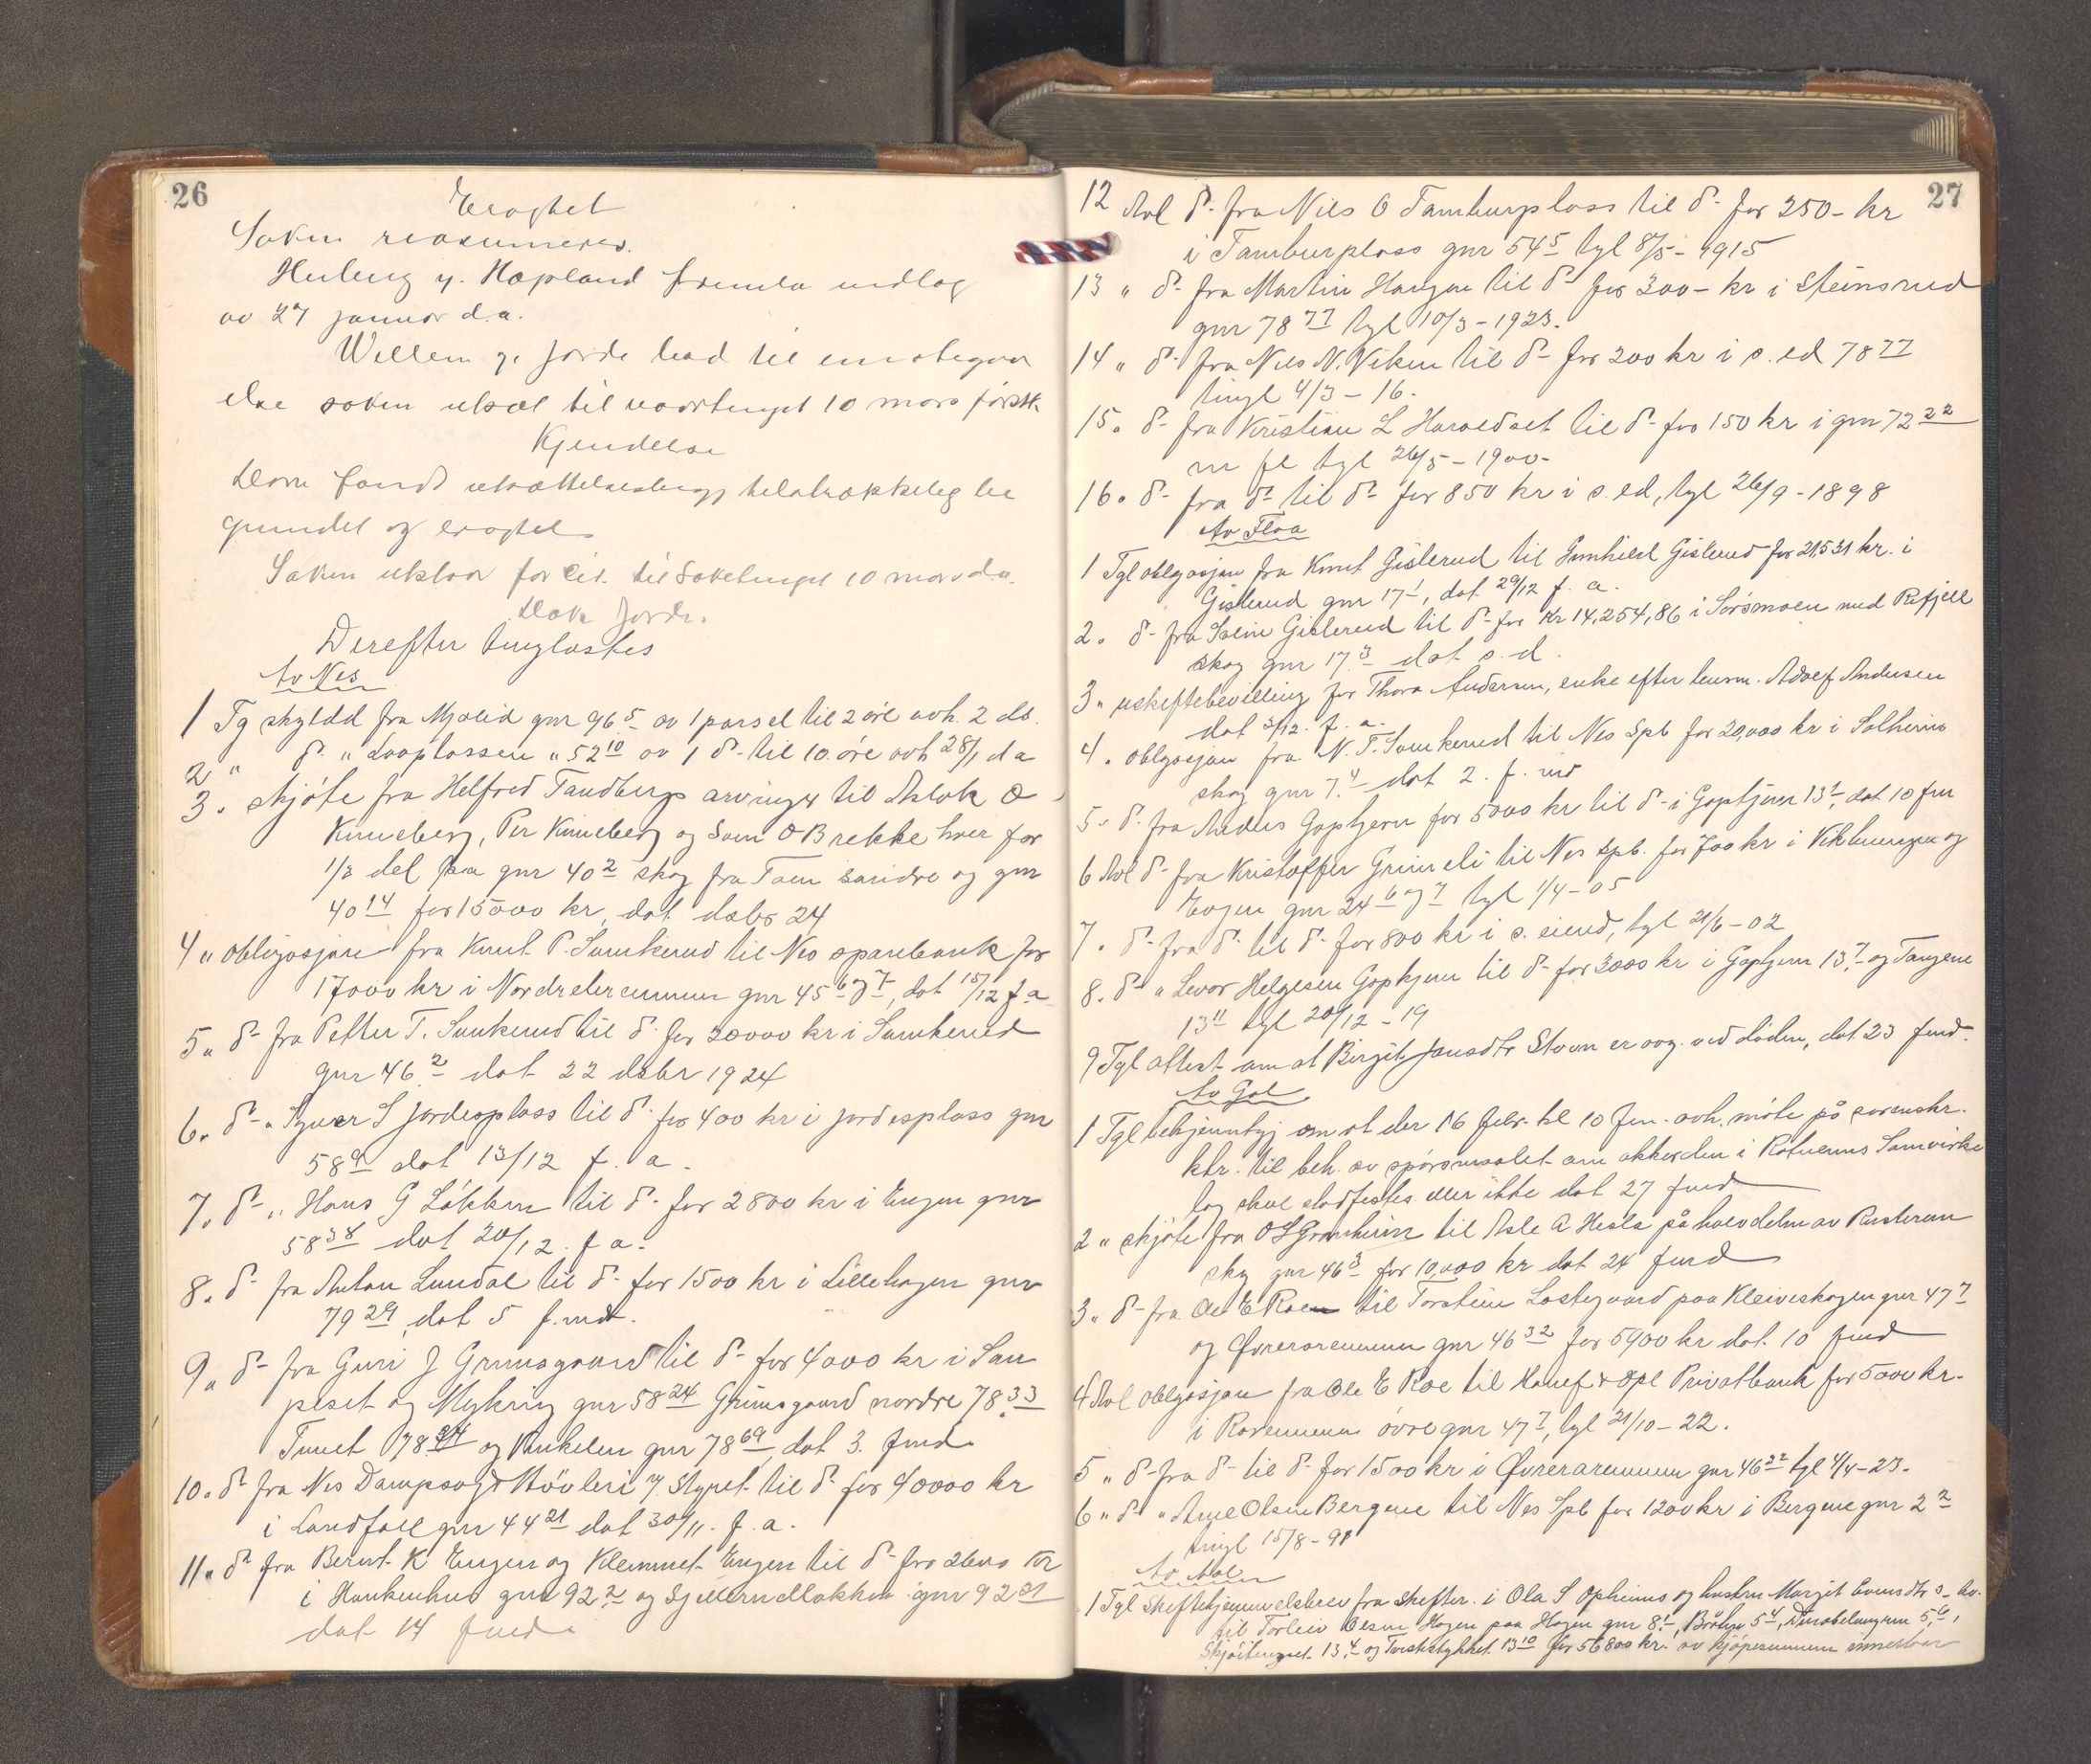 26
Eragtet
Saken reasumeres.
av 27 januar d.a.
saken utsat til vaartinget 10 mars førstk.
Kjendelse
grundet og eragtet
Saken utstaar til Saketinget 10 mars d.a.
Derefter tinglæstes
Av Nes
1 Tg skyldd fra Mjølid gnr 96 5 av 1 parsel til 2 øre avh. 2 ds.
2 " d- " Laaplassen " 52 10 av 1 d- til 10 øre avh 28/1 d a
3 " skjøte fra Helfred Tandbergs arvinger til Aslak O
Kinneberg, Per Kinneberg og Svein O Brekke hver for
1/3 del paa gnr 40 2 skog fra Toen søndre og gnr
40 14 for 15000 kr, dat. desbr 24
4 " obligasjon fra Knut P. Sunkerud til Nes sparebank for
17000 kr i Nordreleremmen gnr 45 6 og 7, dat 15/12 f.a
5 " d- fra Petter T. Sunkerud til d- for 30000 kr i Sunkerud
gnr 46 2 dat 22 desbr 1924
6 " d- " Syver S Jordesplass til d- for 400 kr i Jordesplass gnr
58 9 dat 13/12 f. a.
7 " d- " Hans G Løkken til d- for 2800 kr i Engen gnr
58 38 dat 20/12 f a.
8 " d- fra Anton Lundal til d- for 1500 kr i Lillehagen gnr
79 29, dat 5 f.md.
9 " d- fra Guri J Grimsgaard til d- for 4000 kr i San
peset og Myhring gnr 58 24 Grimsgaard nordre 78 33
Tunet 78 og gnr 78 69, dat 3. fmd
10 " d- fra Nes Dampsag & Høvleri v. Styret til d- for 40000 kr
i Landfall gnr 44 21 dat 30/11. f. a.
11 " d- fra Bernt K Engen og Klemmet Engen til d- for kr
i Haukenhus gnr 92 2 og gnr 92 21
dat 14 fmd.
27
12 Avl d- fra Nils O Tamburplass til d- for 250- kr
i Tamburplass gnr 54 5 tgl 8/5- 1915
13 " d- fra Martin Haugen til d- for 300- kr i Steinsrud
gnr 78 77 tgl 10/3-1923.
14 " d- fra Nils N. Viken til d- for 200 kr i s. ed 78 77
tingl 4/3-16.
15 " d- fra Kristian L Haraldset til d- for 150 kr i gnr 72 22
m fl tgl 26/5-1900-
16 " d- fra d- til d- for 850 kr i s. ed, tgl 26/9-1898
Av Flaa
1 Tgl obligasjon fra Knut Gislerud til Gunhild Gislerud for 21531 kr. i
Gislerud gnr 17 1, dat 29/12 f. a.
2 " d- fra Gislerud til d- for kr 14,254,86 i Sørsmoen med Refjell
skog gnr 17 3 dat s. d.
3 " uskiftebevilling for Thora Andersen, enke efter Adolf Andersen
dat 3/12. f. a.
4 " obligasjon fra N. T. Sunkerud til Nes Spb for 20,000 kr i Solheims
skog gnr 7 4 dat 2. f. md
5 " d- fra Gaptjern for 5000 kr til d- i Gaptjern 13 7, dat 10 fm
6 Avl d- fra Kristoffer Grimeli til Nes Spb. for 700 kr i og
Engen gnr 24 6 og 7 tgl 1/4-05
7 " d- fra d- til d- for 800 kr i s. eiend, tgl 21/6-02
8 " d- " Levor Helgesen Gaptjern til d- for 3000 kr i Gaptjern 13 7 og Tangene
13 11 tgl 20/12-19
9 Tgl attest om at Birgit Jansdtr Stavn er avg. ved døden, dat 23 fmd.
Av Gol
1 Tgl om at der 16 febr. kl 10 fm. avh. møte på sorenskr.
ktr. til beh. av spørsmaalet om akkorden i Samvirke
lag skal stadfestes eller ikke dat 27 fmd
2 " skjøte fra O S Granheim til Asle A Hesla på halvdelen av
skog gnr 46 3 for 10,000 kr dat 24 fmd
3 " d- fra Ole E Roe til Torstein Lostegaard paa Kleiveskogen gnr 47 7
og Øvreroremmen gnr 46 32 for 5900 kr dat. 10 fmd
4 Avl obligasjon fra Ole E Roe til Privatbank for 5000 kr.
i Roremmen øvre gnr 47 7, tgl 21/10-22.
5 " d- fra d- til d- for 1500 kr i Øvreroremmen gnr 46 32 tgl 4/4-23.
6 " d- " Arne Olsen Bergene til Nes Spb for 1200 kr i Bergene gnr 2 2
tingl 15/8-91
Av Aal
1 Tgl skiftehjemmelsbrev fra skiftr. i Ola S Opheims og hustru Margit
til Torleiv Olsen Hagen paa Hagen gnr 8 1, 5 4, 5 6,
13 4 og 13 10 for 56800 kr. av kjøpesummen innestaar